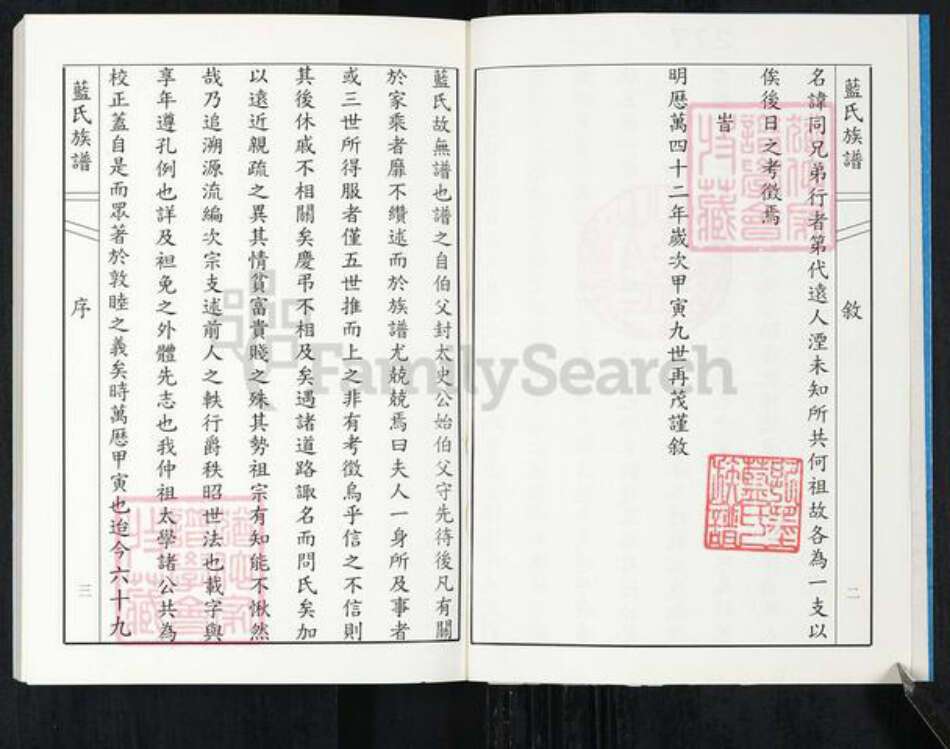 藍氏族譜
敘
二
名諱同兄弟行者第代遠人湮未知所共何祖故各為一支以
俟後日之考徵焉
旹
明歷萬四十二年歲次甲寅九世再茂謹敘
藍氏故無譜也譜之自伯父封太史公始伯父守先待後凡有關
於家乘者靡不纘述而於族譜尤兢兢焉曰夫人一身所及事者
或三世所得服者僅五世推而上之非有考徵烏乎信之不信則
其後休戚不相關矣慶弔不相及矣遇諸道路諏名而問氏矣加
以遠近親疏之異其情貧富貴賤之殊其勢祖宗有知能不愀然
哉乃追溯源流編次宗支述前人之軼行爵秩昭世法也載字與
享年遵孔例也詳及袒免之外體先志也我仲祖太學諸公共為
校正蓋自是而眾著於敦睦之義矣時萬歷甲寅也迨今六十九
藍氏族譜
序
三
FamilySearch